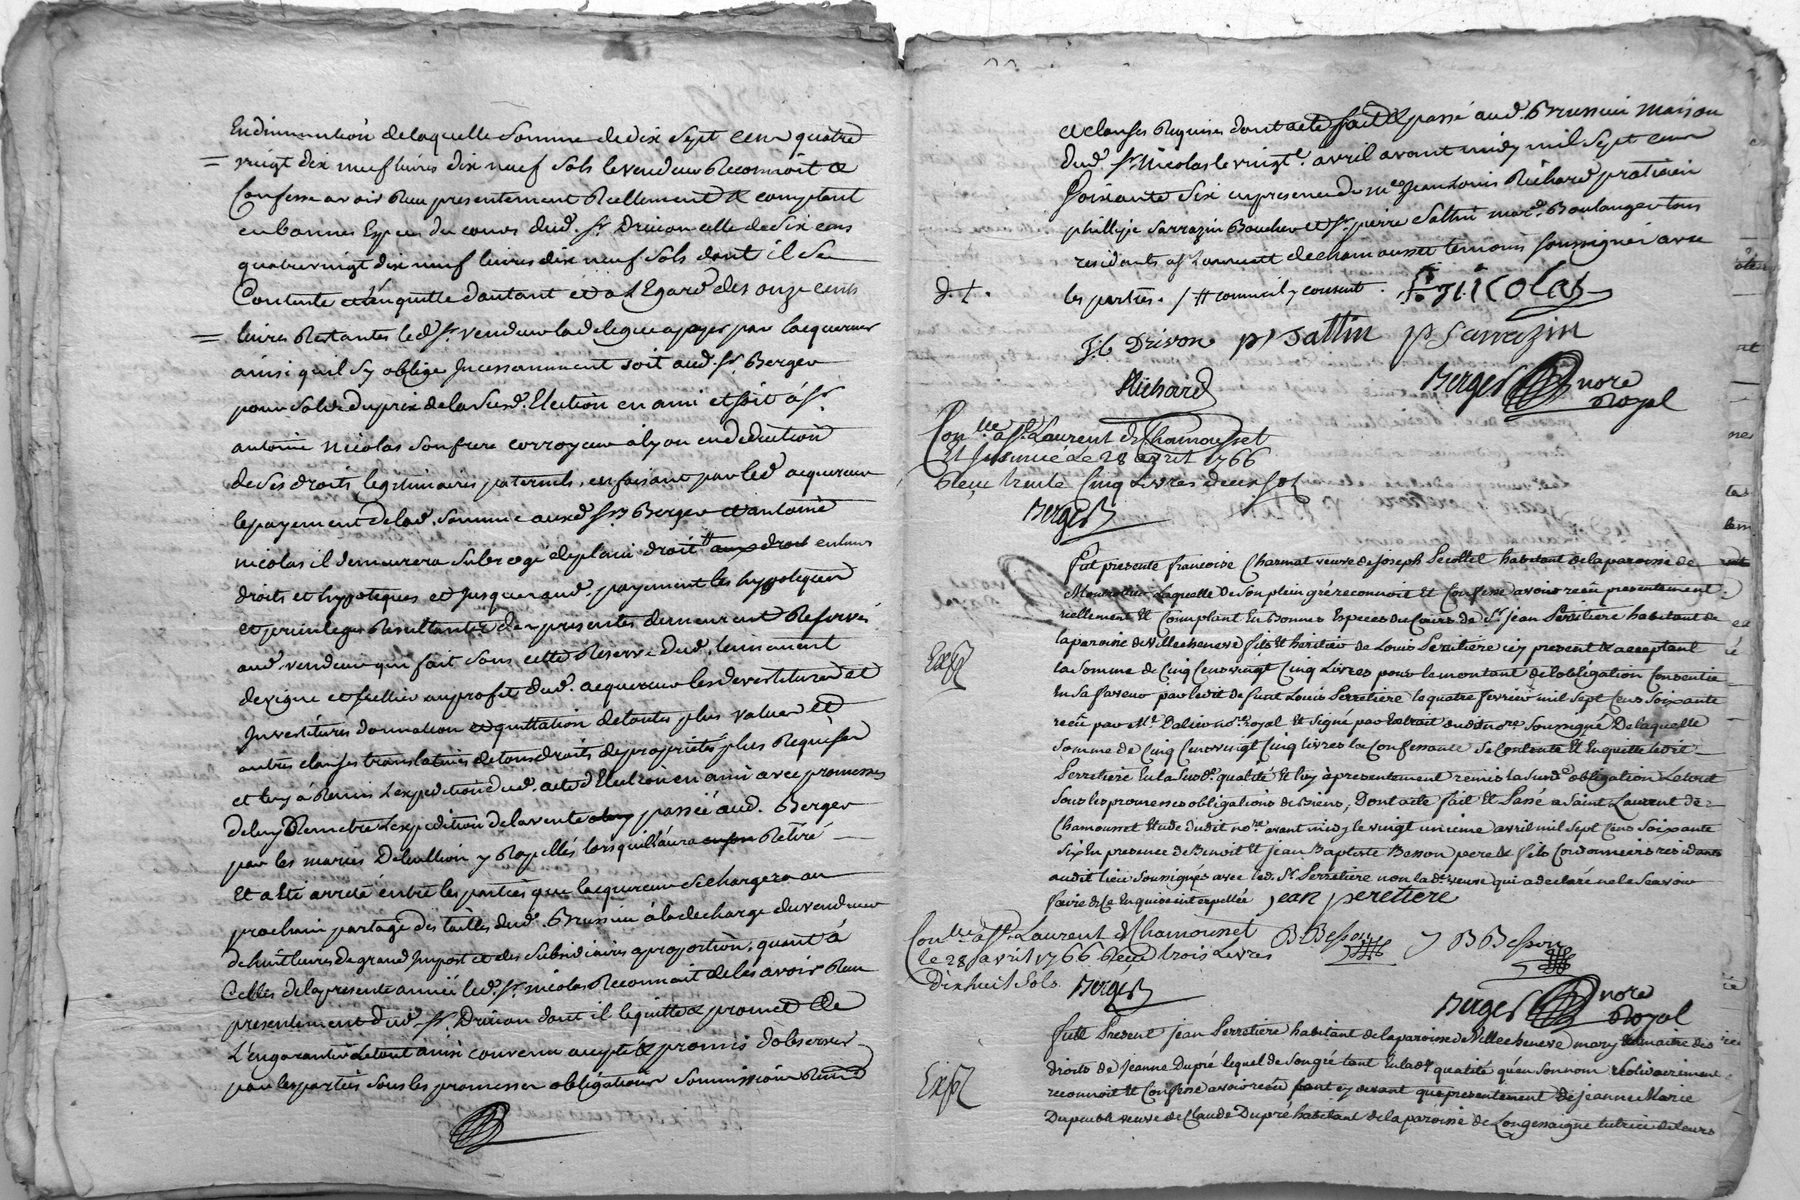 En diminution de laquelle somme de dix sept cens quatre
vingt dix neuf livres dix neuf sols le vendeur Reconnoit &
Confesse avoir Reçu presentement Reellement & comptant
en bonnes Especes du cours dud. Sr. Drivon celle de six cens
quatrevingt dix neuf livres dix neuf sols dont il se
Contente et l'en quitte d'autant et a l'Egard des onze cents
livres Restantes led. Sr. vendeur la delegue a payer par l'acquereur
ainsi qu'il s'y oblige Incessamment soit aud. Sr. Berger
pour solde du prix de la susd. Election en ami et soit à Sr.
antoine nicolas son frere corroyeur à lyon en deduction
de ses droits legitimaires paternels, en faisant par led. acquereur
le payement de lad. somme auxd. Srs. Berger et antoine
nicolas il demeurera subrogé de plein droit en leurs
droits et hypoteques et jusques aud. payement les hypoteques
et privileges Resultants des presentes demeurent Reservés
aud. vendeur qui fait sous cette Reserve dud. tenement
de vigne et cellier au profit dud. acquereur les devestitures et
Investitures donnation et quittation de toutes plus values et
autres clauses translatives de tous droits de proprietés plus Requises
et luy a Remis l'expedition dud. acte d'Election en ami avec promesses
de luy Remettre l'expedition de la vente passée aud. Berger
par les mariés y Rapellés lorsqu'il l'aura Retiré
Et a Eté arreté entre les parties que l'acquereur se chargera au
prochain partage des tailles dud. Brussieu à la decharge du vendeur
de huit livres de grand Impost et des subsidiaires a proportion, quant à
Celles de la presente année led. Sr. nicolas Reconnait de les avoir Reçu
presentement dud. Sr. Drivon dont il le quitte & promet de
l'en garantir Le tout ainsi convenu accepté & promis d'observer
par les parties sous les promesses obligations soumissions Renon
et clauses Requises dont acte fait & passé aud. Brussieu maison
dud. Sr. Nicolas le vingt avril avant midy mil sept cens
soixante six en presence de me. Jean Louis Richard praticien
phillipe Sarrazin Boucher et Sr. pierre Sattin mard. Boulanger tous
residants a St. Laurent de chamousset temoins soussignés avec
les parties.
Nicolas
Drivon p. Sattin p Sarrazin
Richard
Berger nore
Royal
Conlle. a St. Laurent de Chamousset
Et Insinué Le 28 avril 1766
Reçu trente Cinq Livres deux sols
Berger
Fut presente francoise Charmat veuve de Joseph habitant de la paroisse de
Laquelle de son plein gré reconnoit Et Confesse avoir reçu presentement
reellement Et Comptant En Bonnes Especes du Cours de Sr. jean Perretiere habitant de
la paroisse de Villechenève fils Et heritier de Louis Perretiere icy present & acceptant
la somme de Cinq Cens vingt Cinq Livres pour le montant de l'obligation Consentie
En sa faveur par ledit de funt Louis Perretiere le quatre fevrier mil sept Cens soixante
recue par Me. nore. Royal Et signé par Extrait dudit nore. soussigné De laquelle
somme de Cinq Cens vingt Cinq livres la Confessante se Contente Et En quitte ledit
Perretiere En la susd. qualité Et luy à presentement remis la susd. obligation Le tout
sous les promesses obligations de Biens, Dont acte fait Et Passé a Saint Laurent de
Chamousset Etude dudit nore. avant midy le vingt unieme avril mil sept Cens soixante
six En presence de Benoit Et jean Baptiste Besson pere & fils Cordonniers residants
audit lieu soussignés avec led. Sr. Perretiere non lad. veuve qui a declaré ne le scavoir
faire de Ce Enquise et interpellée jean peretiere
Conlle. a St. Laurent de Chamousset
le 28 avril 1766 Reçu trois Livres
Dix huit sols
B Besson J B Besson
Berger
Berger nore
Royal
fut Present jean Perretiere habitant de la paroisse de Villechenève mary & maitre des
droits de Jeanne Dupré lequel de son gré tant En lad. qualité qu'en son nom solidairement
reconnoit Et Confesse avoir reçu tant cy devant que presentement de jeanne Marie
veuve de Claude Dupré habitant de la paroisse de Longessaigne tutrice de leurs